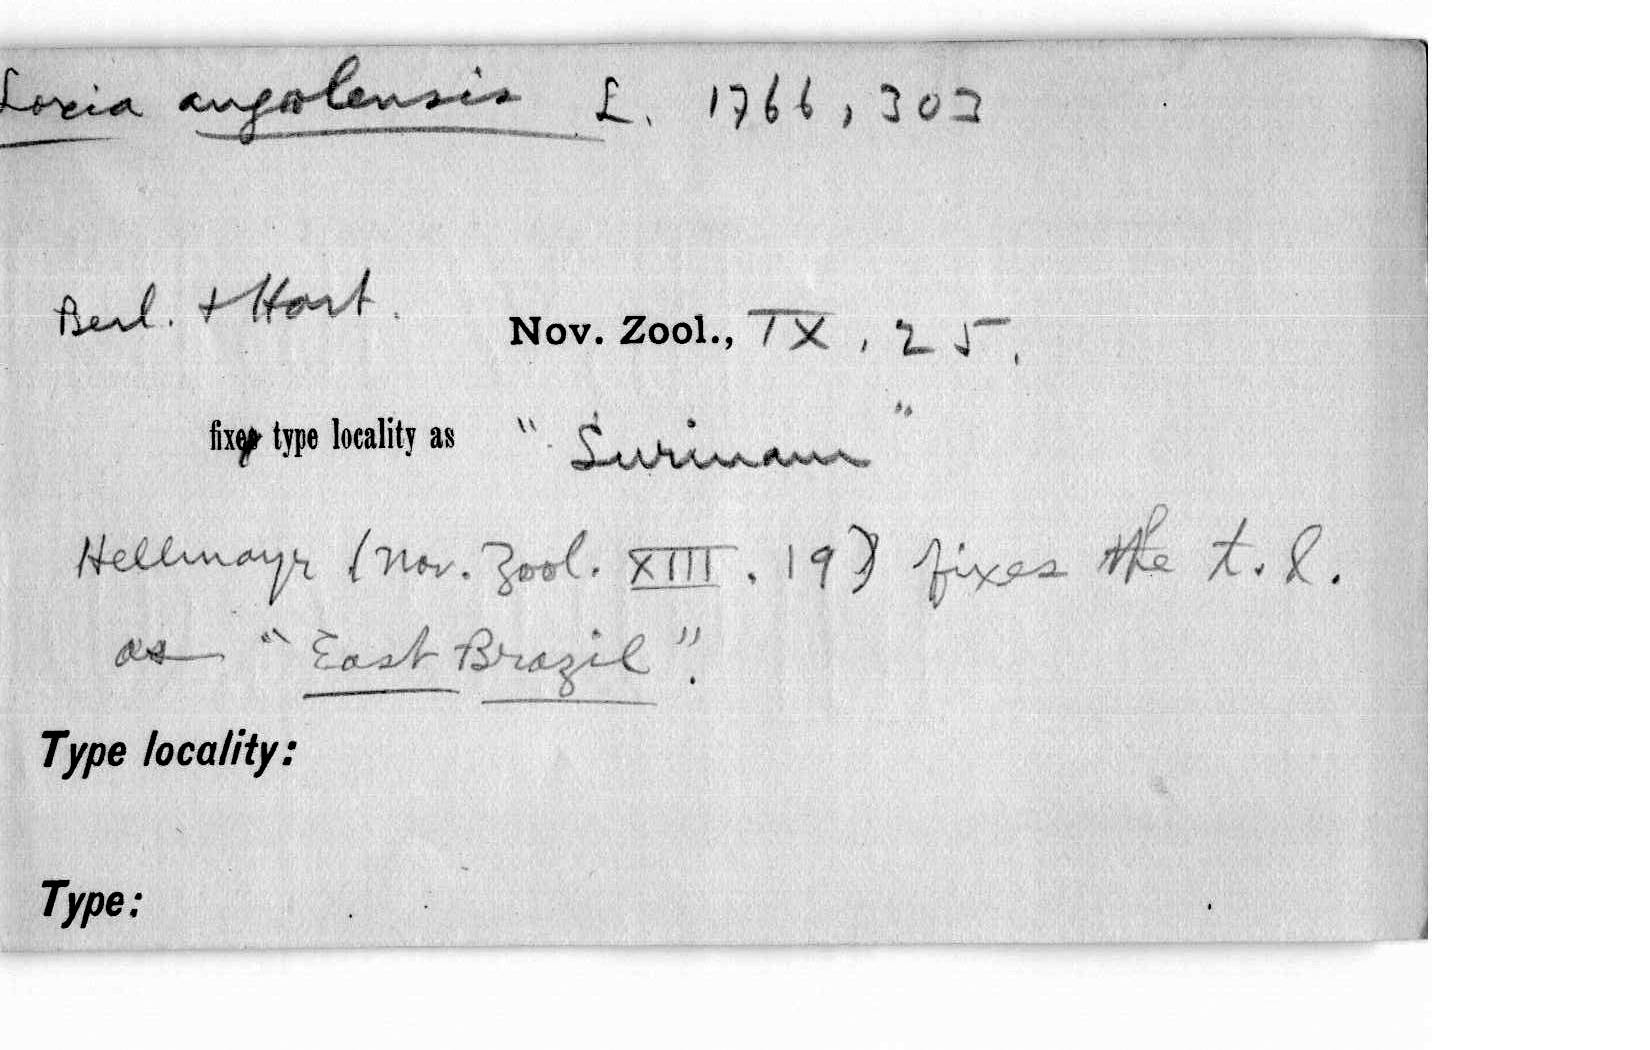 Loxia angolensis L. 1766, 303
Berl. + Hart. Nov. Zool., IX, 25.
fix type locality as "Surinam"
Hellmayr (Nov. Zool. XIII. 19) fixes the t.l.
as "East Brazil".
Type locality:
Type: